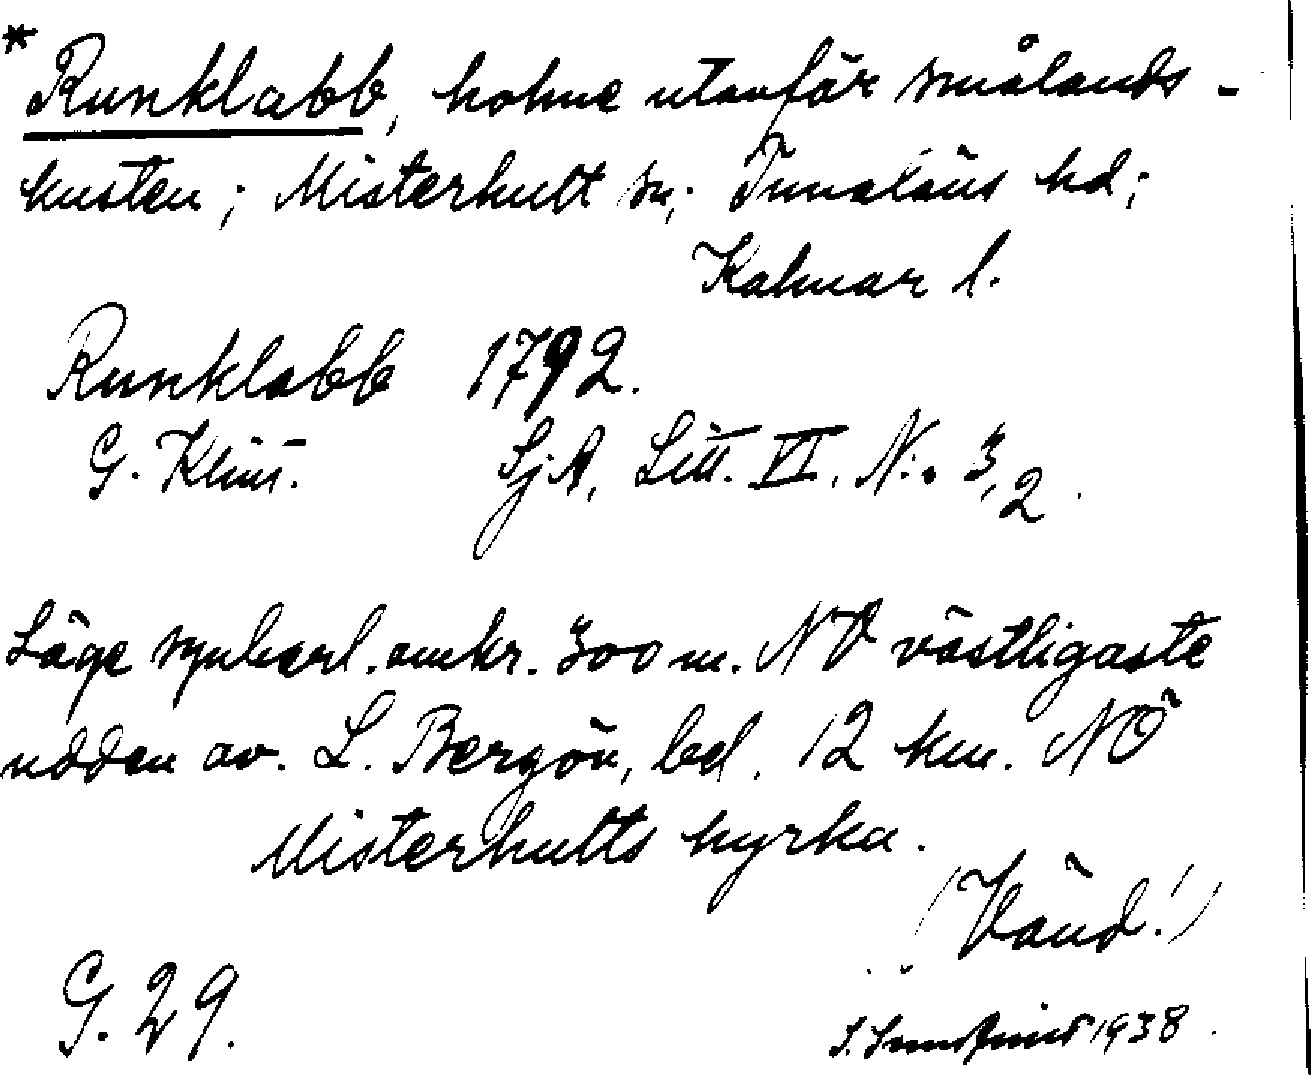 * Runklabb, holme utanför smålands-
kusten; Misterhult sn; Tunaläns hd;
Kalmar l.
Runklabb 1792.
G. Klint. SjA, Litt. VI. N:o 3,2.
Läge synbarl. omkr. 300 m. NV västligaste
udden av. L. Bergön, bel. 12 km. NÖ
Misterhults kyrka.
(Vänd!)
G. 29.
1938.